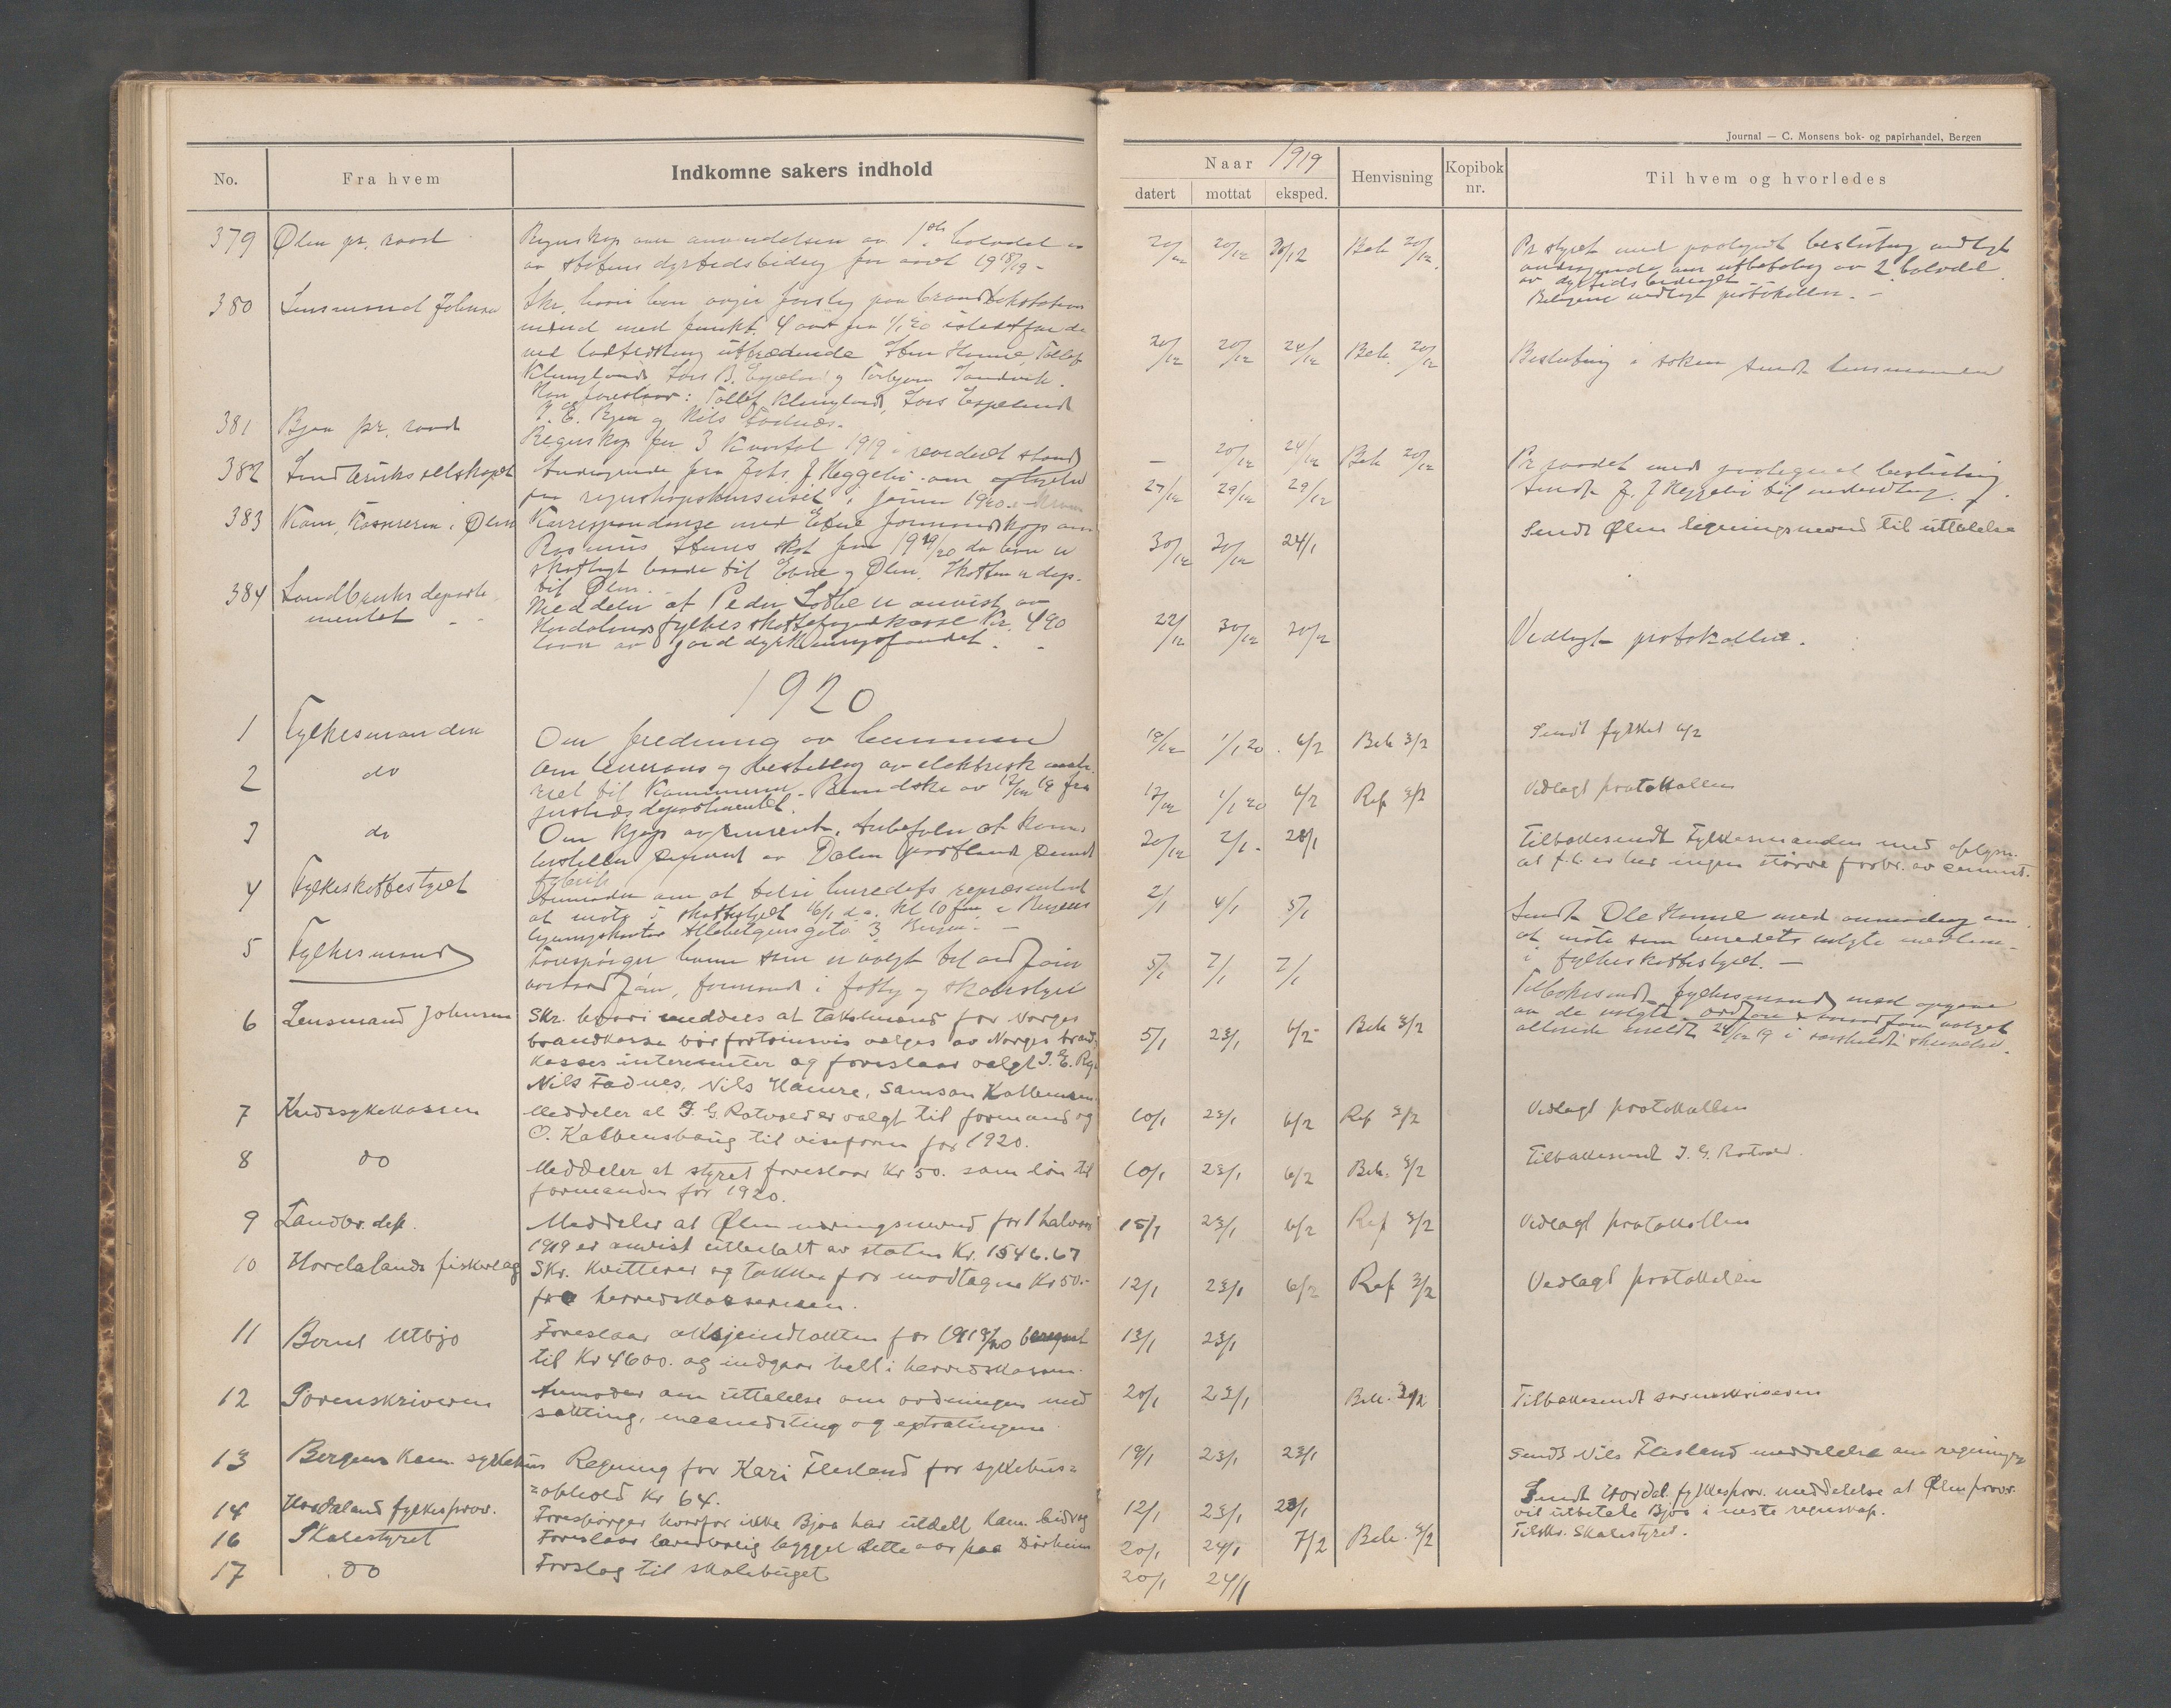 Journal — C. Monsens bok- og papirhandel, Bergen
No.
Fra hvem
Indkomne sakers indhold
Naar 1919
datert
mottat
eksped.
Henvisning
Kopibok nr.
Til hvem og hvorledes
379 Ølen pr. raad
Regnskap om anvendelsen av 1ste halvdel
av statens dyrtidsbidrag for aaret 1918/19 -
20/12 20/12 30/12 Beh 20/12
av dyrtidsbidraget
vedlagt protokollen. -
380 Lensmand Johnsen
Skr. hvori han avgir forslag paa
mænd med funkt. 4 aar fra 1/1 20 istedetfor de
ved lodtrækning uttrædende Sten Hamre, Tollef
Klungland, Lars B. Espeland og Torbjørn Sandvik.
Han foreslaar: Tollef Klungland, Lars Espeland
og Nils Fadnes.
20/12 20/12 24/12 Beh. 20/12
Beslutning i saken sendt lensmanden
381 Bjoa pr. raad
Regnskap for 3 Kvartal 1919 i revideret stand
— 20/12 24/12 Beh 20/12
Pr raadet med paategnet beslutning
382 Landbruksselskapet
Andragende fra Johs. J. Heggebø om
regnskapskurset i januar 1920.
27/12 29/12 29/12
Sendt J. J Heggebø til underretning.
383 Kom. Kasserer i Ølen
Korrespondanse med Etne formandskap om
Rasmus skat for 1919/20 da han er
skatlagt baade til Etne og Ølen. Skatten
til Ølen.
30/12 30/12 24/1
Sendt Ølen ligningsnevnd til uttalelse
384 Landbruks departe-
mentet - -
Meddeler at Peder er anvist av
Hordalands fylkes skattefogedkasse Kr. 490
laan av jorddyrkningsfondet. -
22/12 30/12 30/12
Vedlagt protokollen.
1920
1 Fylkesmanden
Om fredning av
18/12 1/1 20. 6/2 Beh 3/2
Sendt fylket 6/2
2 do
Om leverans og bestilling av elektrisk
riel til Kommunen. Rundskr. av 12/12 19 fra
justisdepartementet.
12/12 1/1 20 6/2 Ref 3/2
Vedlagt protokollen
3 do
Om kjøp av cement. Anbefaler at komm.
bestiller cement av Dalen portland cement
fabrik
20/12 2/1 - 28/1
Tilbakesendt Fylkesmanden med oplysn.
at f.t. er her ingen større forbr. av cement.
4 Fylkesskattestyret
Anmoder om at tilsi herredets repræsentant
at møte i skattestyret 16/1 d.a. kl 10 fm. i Bergens
ligningskontor Allehelgensgate 3 Bergen. -
2/1 4/1 5/1
Sendt Ole Hamre med anmodning om
at møte som herredets valgte medlem
i fylkesskattestyret. —
5 Fylkesmand
Forespørger hvem som er valgt til ordfører
varaordfører, formand i fattig og skolestyret
5/1 7/1 7/1
Tilbakesendt fylkesmand med opgave
av de valgte. ordfører & varaordfører valget
allerede meldt 29/12 19 i særskildt skrivelse.
6 Lensmand Johnsen
Skr. hvori meddeles at takstmænd for Norges
brandkasse bør fortrinsvis velges av Norges brand-
kasses interesenter og foreslaar valgt J. E.
Nils Fadnes, Nils Hamre, Samson
5/1 23/1 6/2 - Beh 3/2
7 Kredssykekassen
Meddeler at J. G. Rotvold er valgt til formand og
O. Kalbenshaug til viseform for 1920.
10/1 23/1 6/2 Ref 3/2
Vedlagt protokollen
8 do
Meddeler at styret foreslaar Kr 50. som løn til
formanden for 1920.
10/1 23/1 6/2 Beh. 3/2
Tilbakesendt J. G. Rotvold.
9 Landbr. dep.
Meddeler at Ølen næringsnevnd for 1 halvaar
1919 er anvist utbetalt av staten Kr. 1546.67
15/1 23/1 6/2 Ref 3/2
Vedlagt protokollen
10 Hordalands fiskerlag
Skr. Kvitterer og takker for modtagne Kr 50.-
fra herredskassereren.
12/1 23/1 6/2 Ref 3/2
Vedlagt protokollen
11 Bernt Utbjo
Foreslaar aksjeindtækten for 1919/20 beregnet
til Kr 4600. og indgaar helt i herredskassen.
13/1 23/1
12 Sorenskriveren
Anmoder om uttalelse om ordningen med
sætting, maanedsting og extratingene
20/1 23/1 Beh. 3/2
Tilbakesendt sorenskriveren
13 Bergens kom. sykehus
Regning for Kari Flesland for sykehus-
=ophold Kr 64.
19/1 23/1 23/1
Sendt Nils Flesland meddelelse om regningen
14 Hordaland fylkesprov.
Forespørger hvorfor ikke Bjoa har utdelt kom. bidrag
12/1 23/1 23/1
Sendt Hordal. fylkesprov. meddelelse at Ølen prov.
vil utbetale Bjoa i neste regnskap.
16 Skolestyret
Foreslaar lærerbolig bygget dette aar paa Dørheim
20/1 24/1 7/2 Beh. 3/2
Tilskr. Skolestyret.
17 do
Forslag til skolebuget
20/1 24/1